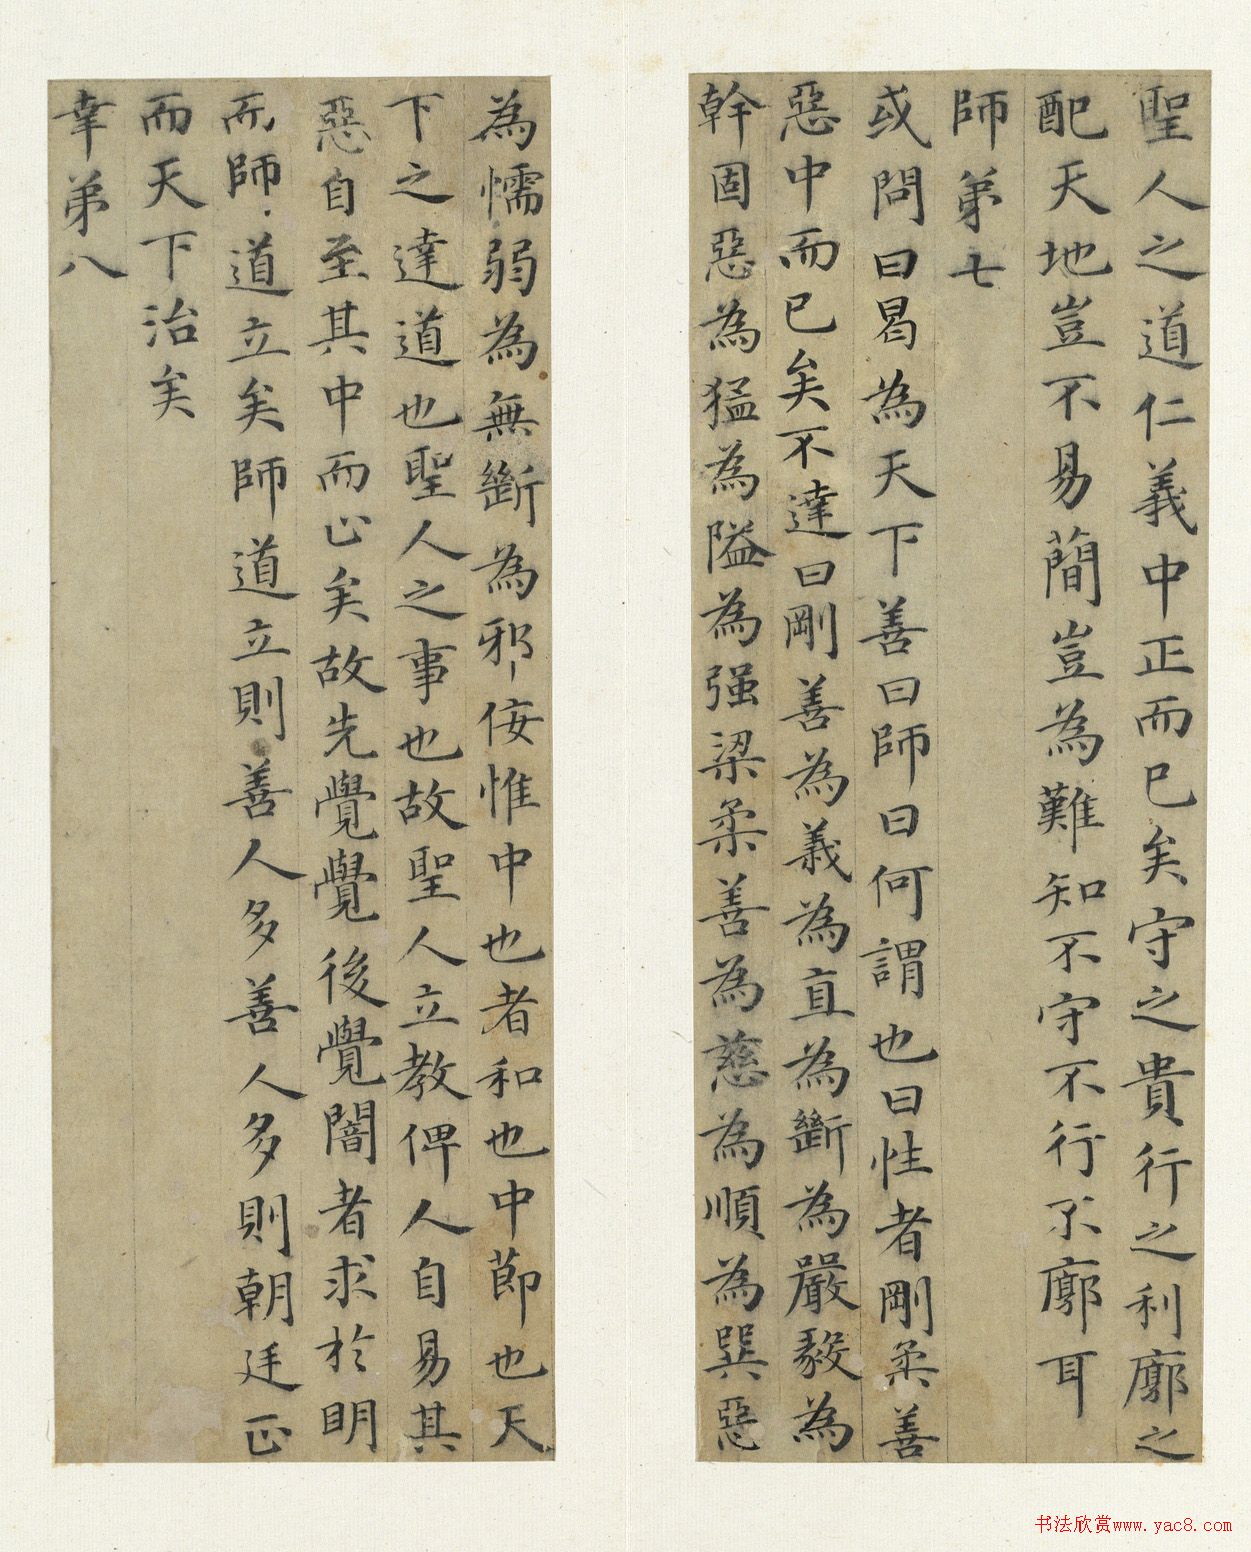 聖人之道仁義中正而已矣守之貴行之利廓之
配天地豈不易簡豈為難知不守不行不廓耳
師第七
或問曰曷為天下善曰師曰何謂也曰性者剛柔善
惡中而已矣不達曰剛善為義為直為斷為嚴毅為
幹固惡為猛為隘為强梁柔善為慈為順為巽惡
為懦弱為無斷為邪佞惟中也者和也中節也天
下之達道也聖人之事也故聖人立教俾人自易其
惡自至其中而止矣故先覺覺後覺闇者求於明
而師道立矣師道立則善人多善人多則朝廷正
而天下治矣
幸第八
书法欣赏www.yac8.com